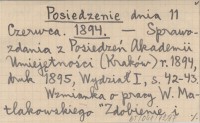 Posiedzenie dnia 11
Czerwca. 1894. — Sprawo-
zdania z Posiedzeń Akademii
Umiejętności (Kraków) r. 1894,
druk 1895, Wydział I, s. 42-43.
Wzmianka o pracy W. Ma-
tlakowskiego "Zdobienie i